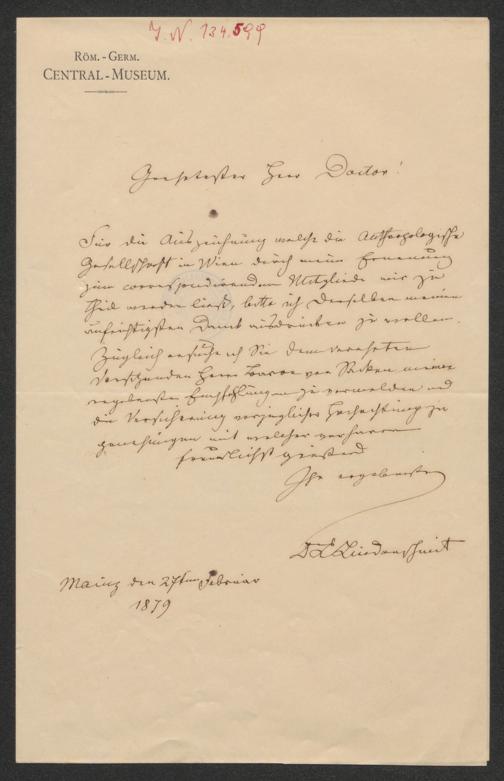 J. N. 134.599
RÖM.-GERM.
CENTRAL-MUSEUM.
Geehrtester Herr Doctor!
Für die Auszeichnung welche die Anthropologische
Gesellschaft in Wien durch meine Ernennung
zum correspondirenden Mitgliede mir zu
theil werden ließ, bitte ich Derselben meinen
aufrichtigsten Dank ausdrücken zu wollen.
Zugleich ersuche ich Sie dem verehrten
Vorsitzenden Herrn Baron von Sacken meine
ergebensten Empfehlungen zu vermelden und
die Versicherung vorzüglicher Hochachtung zu
genehmigen mit welcher verharre
freundlichst grüßend
Ihr ergebenster
Dr L Lindenschmit
Mainz den 27ten Februar
1879